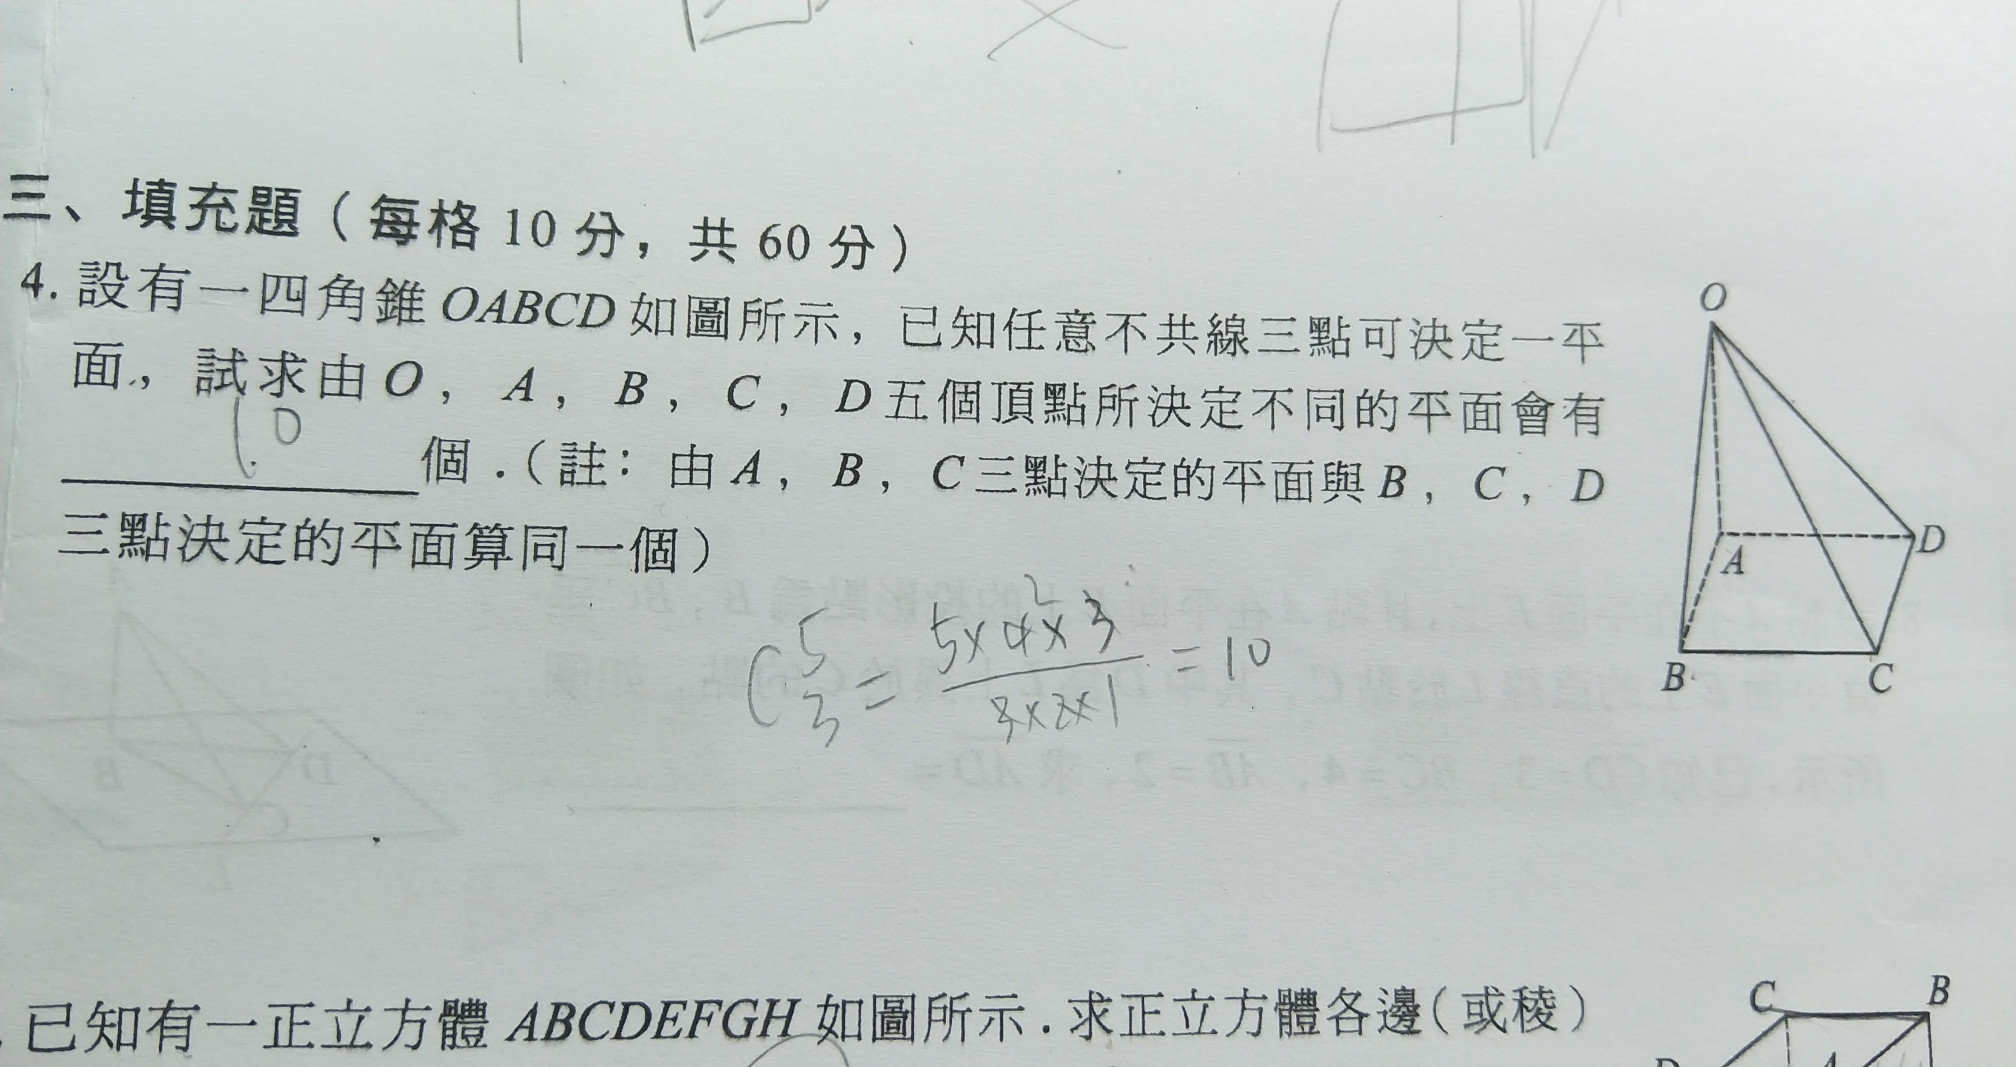 三、填充題（每格 10 分，共 60 分）
4. 設有一四角錐 OABCD 如圖所示，已知任意不共線三點可決定一平
面，試求由 O，A，B，C，D 五個頂點所決定不同的平面會有
10 個．（註：由 A，B，C 三點決定的平面與 B，C，D
三點決定的平面算同一個）
O
A
D
B
C
C 5 3 = 5×4×3 / 3×2×1 = 10
2
已知有一正立方體 ABCDEFGH 如圖所示．求正立方體各邊（或稜）
C
B